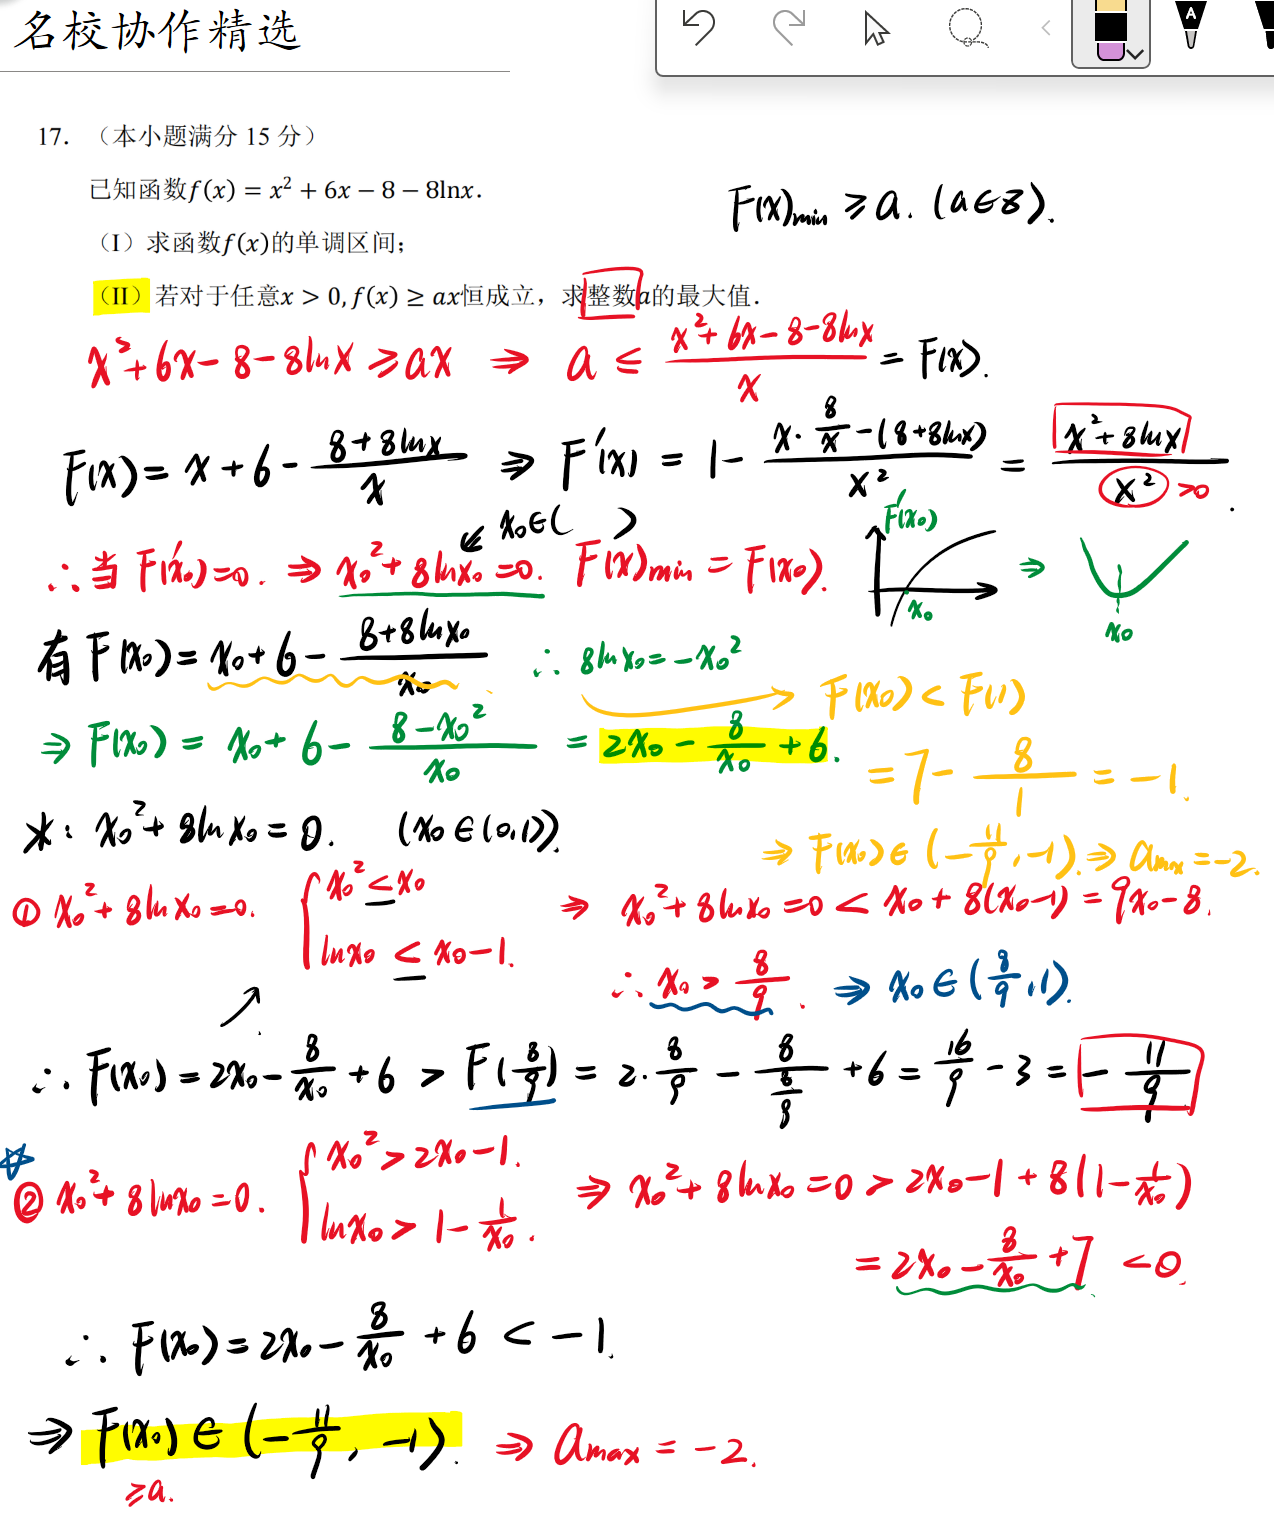 名校协作精选
17. （本小题满分 15 分）
已知函数f(x) = x² + 6x − 8 − 8lnx.
F(x)min ≥ a. (a∈Z).
（I）求函数f(x)的单调区间；
（II）若对于任意x > 0, f(x) ≥ ax恒成立，求整数a的最大值.
x²+6x-8-8lnx ≥ ax ⇒ a ≤ (x²+6x-8-8lnx)/x = F(x).
F(x) = x+6 - (8+8lnx)/x ⇒ F'(x) = 1 - (x·8/x - (8+8lnx))/x² = (x²+8lnx)/x² >0 .
x₀∈( )
∴当 F'(x₀)=0. ⇒ x₀²+8lnx₀=0. F(x)min = F(x₀).
F'(x₀)
x₀
⇒
x₀
有 F(x₀) = x₀+6 - (8+8lnx₀)/x₀ ∴ 8lnx₀ = -x₀²
F(x₀) < F(1)
⇒ F(x₀) = x₀+6 - (8-x₀²)/x₀ = 2x₀ - 8/x₀ + 6.
= 7 - 8/1 = -1.
⇒ F(x₀)∈(-11/9, -1). ⇒ amax = -2.
求: x₀²+8lnx₀=0. (x₀∈(0,1)).
① x₀²+8lnx₀=0. { x₀² ≤ x₀
lnx₀ ≤ x₀-1.
⇒ x₀²+8lnx₀=0 < x₀+8(x₀-1) = 9x₀-8.
∴ x₀ > 8/9. ⇒ x₀∈(8/9,1).
∴ F(x₀) = 2x₀ - 8/x₀ + 6 > F(8/9) = 2·8/9 - 8/(8/9) + 6 = 16/9 - 3 = -11/9
☆
② x₀²+8lnx₀=0. { x₀² > 2x₀-1.
lnx₀ > 1-1/x₀.
⇒ x₀²+8lnx₀=0 > 2x₀-1+8(1-1/x₀)
= 2x₀ - 8/x₀ + 7 < 0.
∴ F(x₀) = 2x₀ - 8/x₀ + 6 < -1.
⇒ F(x₀)∈(-11/9, -1). ⇒ amax = -2.
≥a.